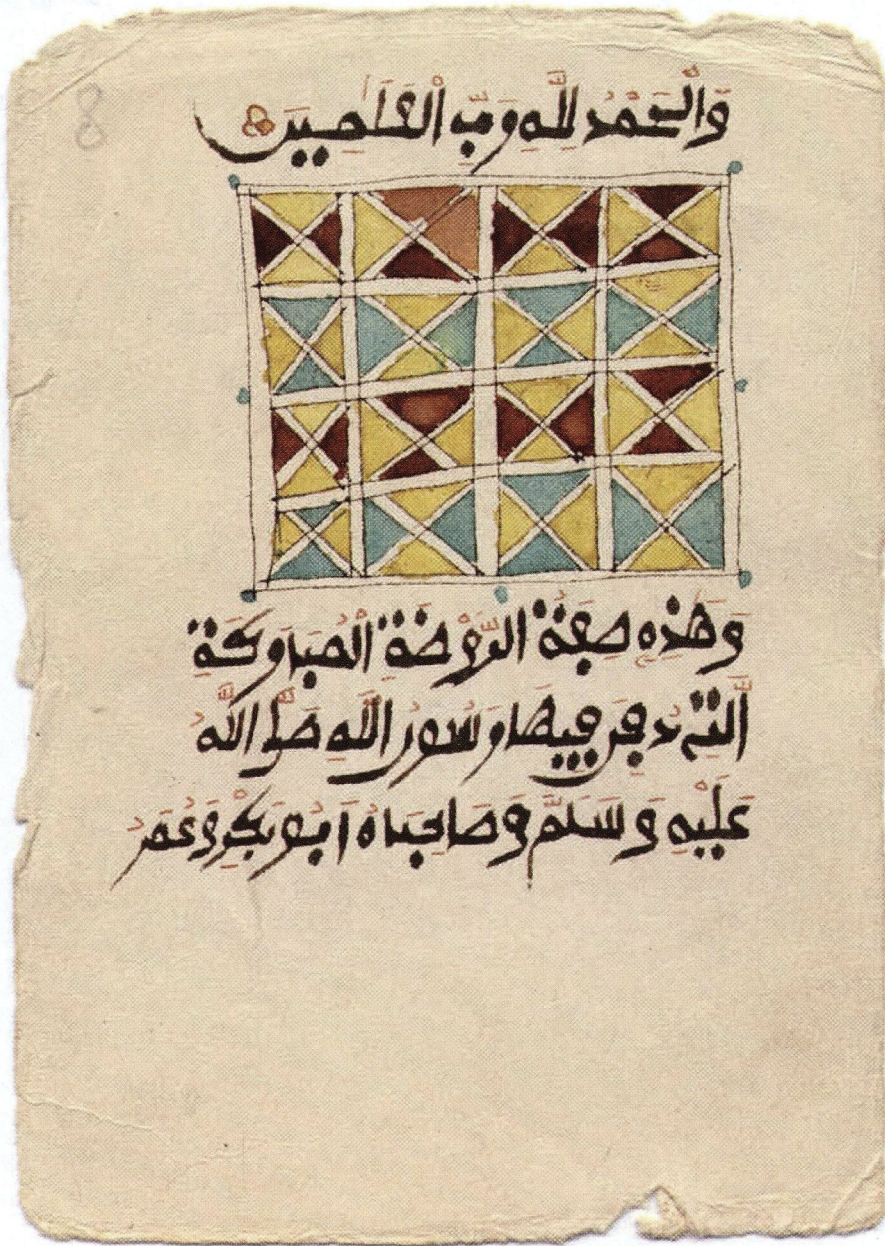 8
وَالْحَمْدُ لِلَّهِ رَبِّ الْعَالَمِينَ
وَهَذِهِ صِفَةُ الرَّوْضَةِ الْمُبَارَكَةِ
الَّتِي دُفِنَ فِيهَا رَسُولُ اللَّهِ صَلَّى اللَّهُ
عَلَيْهِ وَسَلَّمَ وَصَاحِبَاهُ أَبُو بَكْرٍ وَعُمَرُ